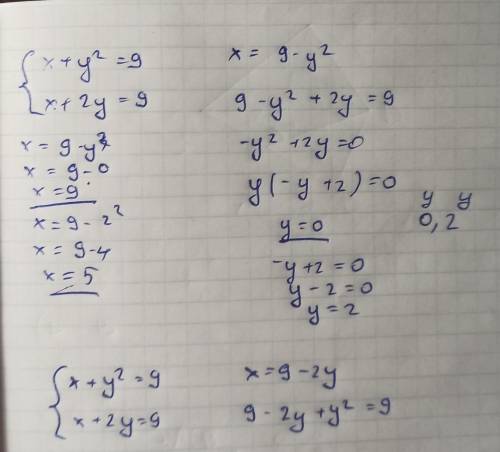 x + y² = 9
x + 2y = 9
x = 9 - y²
x = 9 - 0
x = 9
x = 9 - 2²
x = 9 - 4
x = 5
x = 9 - y²
9 - y² + 2y = 9
-y² + 2y = 0
y(-y + 2) = 0
y = 0
-y + 2 = 0
y - 2 = 0
y = 2
y y
0, 2
x + y² = 9
x + 2y = 9
x = 9 - 2y
9 - 2y + y² = 9